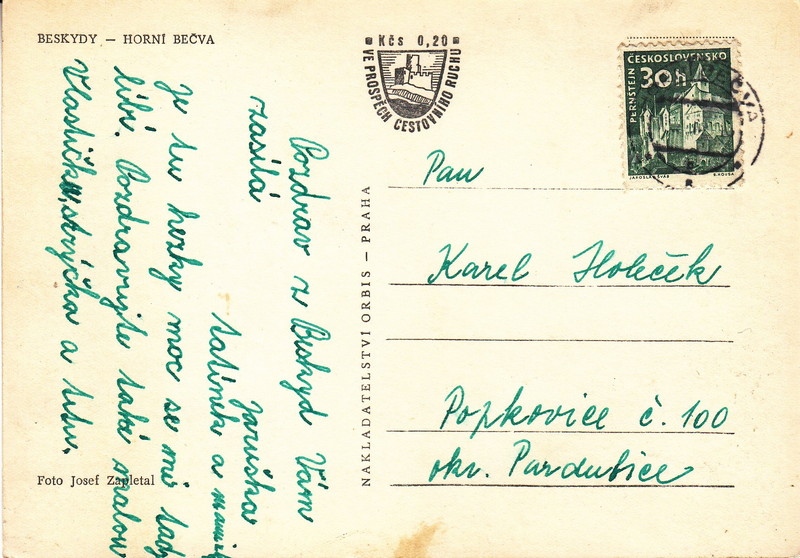 BESKYDY — HORNÍ BEČVA
Kčs 0,20
VE PROSPĚCH CESTOVNÍHO RUCHU
PERNŠTEJN
ČESKOSLOVENSKO
30h
JAROSLAV ŠVÁB
BEČVA
Pan
Karel Holeček
Popkovice č. 100
okr. Pardubice
NAKLADATELSTVÍ ORBIS — PRAHA
Pozdrav z Beskyd Vám
zasílá
Jaruška
tatínek a
Je tu hezky moc se mi tady
líbí. Pozdravujte také malou
strýčka a tetu.
Foto Josef Zapletal